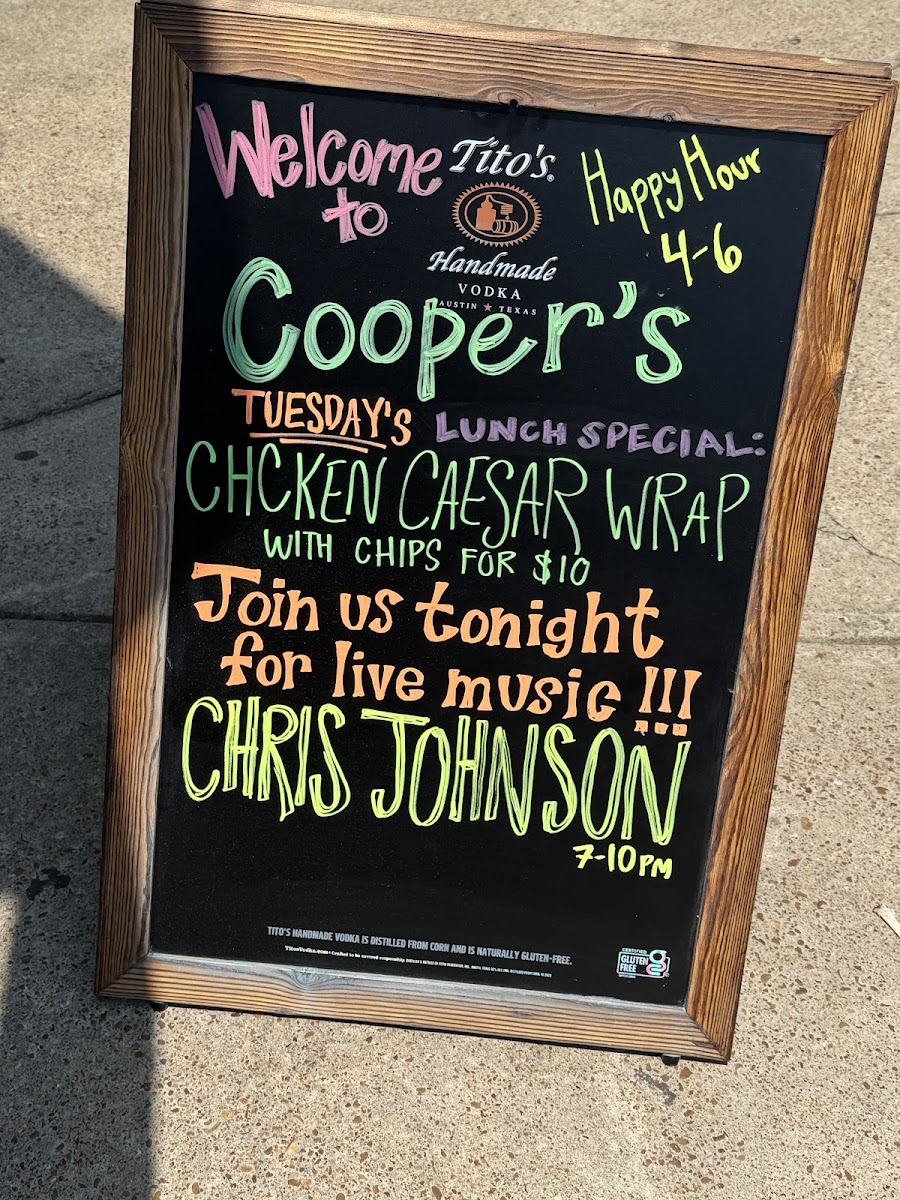 Welcome
to
Tito's®
Handmade
VODKA
AUSTIN ★ TEXAS
Happy Hour
4-6
Cooper's
TUESDAY'S LUNCH SPECIAL:
CHCKEN CAESAR WRAP
WITH CHIPS FOR $10
Join us tonight
for live music !!!
CHRIS JOHNSON
7-10PM
TITO'S HANDMADE VODKA IS DISTILLED FROM CORN AND IS NATURALLY GLUTEN-FREE.
TitosVodka.com • Crafted to be savored responsibly.
CERTIFIED
GLUTEN
FREE